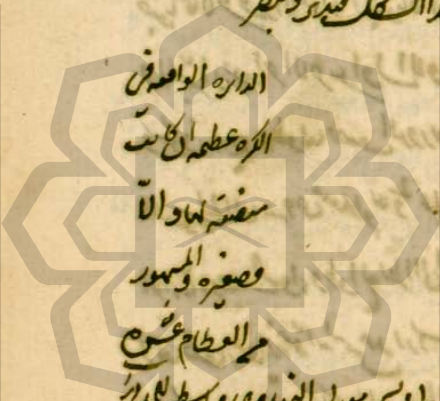 الدائره الواقعه فى
الكره عظيمه ان كانت
منصفة لها و الّا
فصغيره و المشهور
من العظام عشره